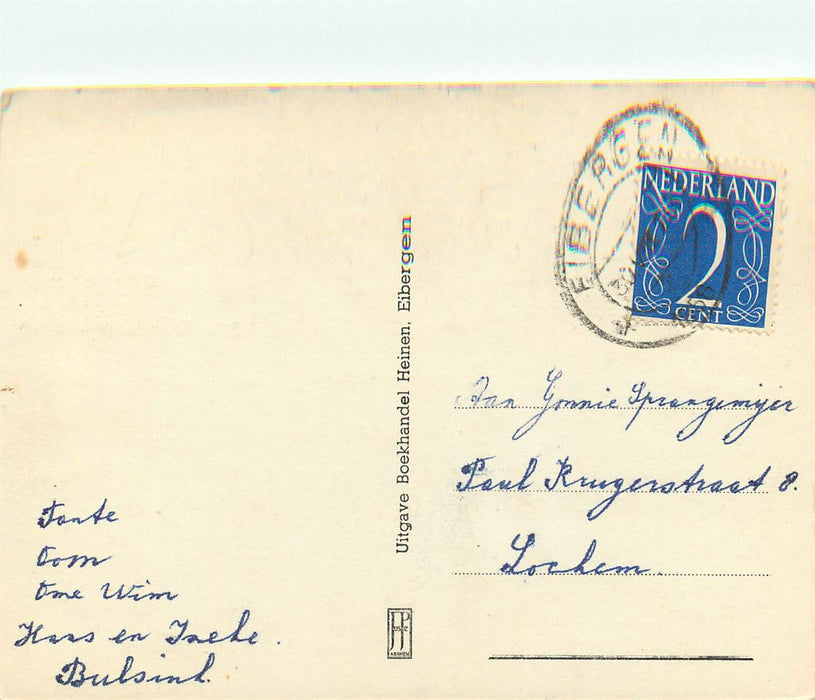 EIBERGEN
NEDERLAND
2
CENT
Uitgave Boekhandel Heinen, Eibergen
Aan Gonnie Sprangemijer
Paul Krugerstraat 8.
Lochem.
Tante
Oom
Ome Wim
Hans en Ineke.
Bulsink.
ARNHEM